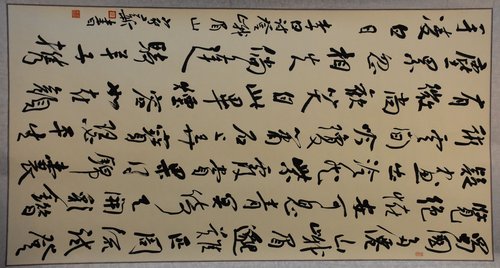 蜀國多僊山峨眉邈難匹周流試登
覽絕怪安可悉青冥倚天開彩錯
疑畫出泠然紫霞賞果得錦囊
術雲間吟瓊簫石上弄寶瑟平生
有微尚歡笑自此畢煙容如在顏
塵累忽相失倘逢騎羊子攜
手凌白日 李白詩登峨眉山
書